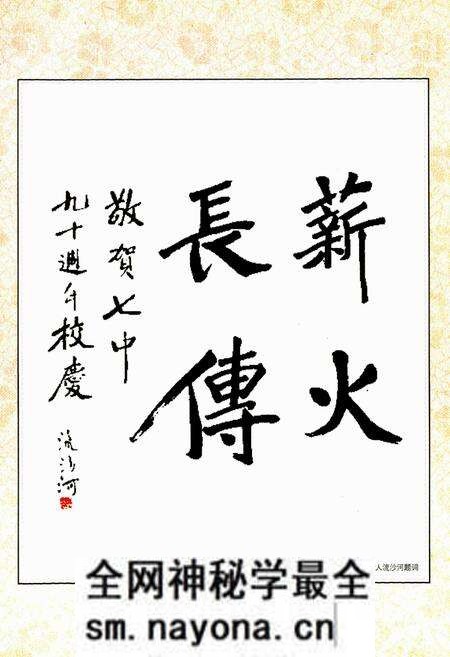 薪火
長傳
敬賀七中
九十週年校慶
流沙河
人流沙河題词
全网神秘学最全
sm.nayona.cn